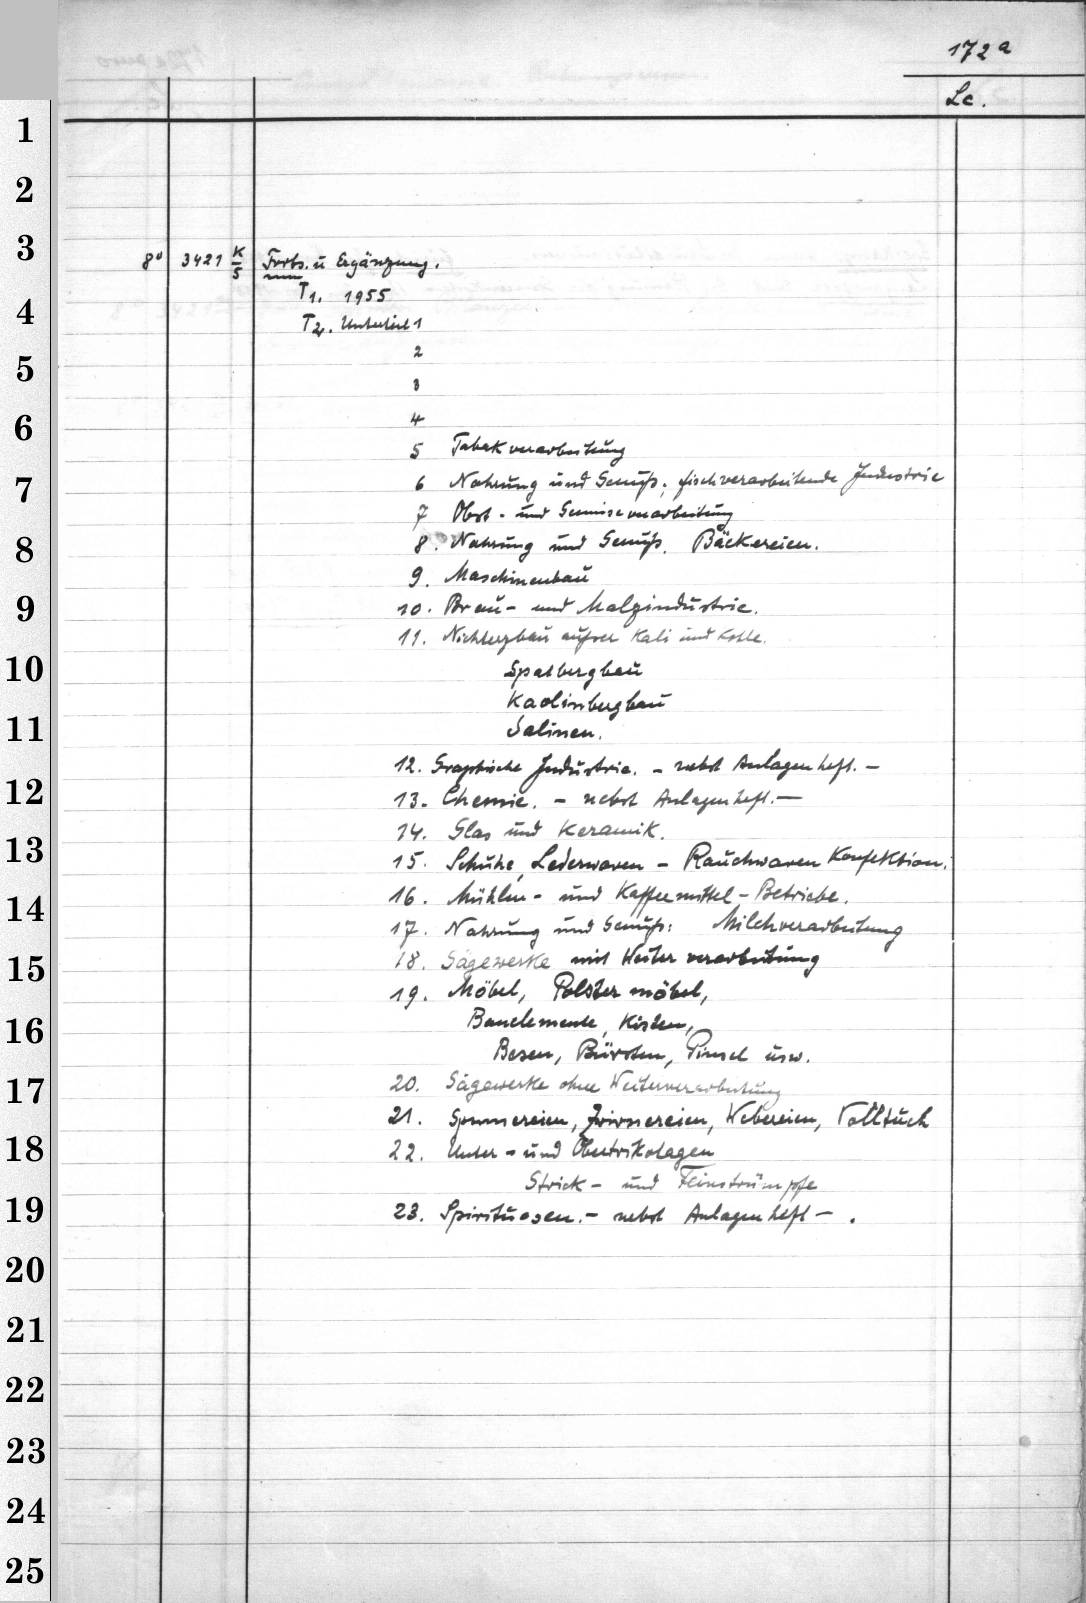 172 a
Lc.
8° 3421 K/5 Forts. u Ergänzung.
T1. 1955
T2. Unterteil 1
2
3
4
5 Tabakverarbeitung
6 Nahrung und Genuß; fischverarbeitende Industrie
7 Obst- und Gemüseverarbeitung
8. Nahrung und Genuß. Bäckereien.
9. Maschinenbau
10. Brau- und Malzindustrie.
11. Nichterzbau außer Kali und Kohle.
Spatbergbau
Kaolinbergbau
Salinen.
12. Graphische Industrie. - nebst Anlagenheft. -
13. Chemie. - nebst Anlagenheft. -
14. Glas und Keramik.
15. Schuhe, Lederwaren - Rauchwaren Konfektion.
16. Mühlen- und Kaffeemittel-Betriebe.
17. Nahrung und Genuß: Milchverarbeitung
18. Sägewerke mit Weiterverarbeitung
19. Möbel, Polstermöbel,
Bauelemente, Kisten,
Besen, Bürsten, Pinsel usw.
20. Sägewerke ohne Weiterverarbeitung
21. Spinnereien, Zwirnereien, Webereien, Volltuch
22. Unter- und Obertrikotagen
Strick- und Feinstrümpfe
23. Spirituosen. - nebst Anlagenheft - .
1
2
3
4
5
6
7
8
9
10
11
12
13
14
15
16
17
18
19
20
21
22
23
24
25